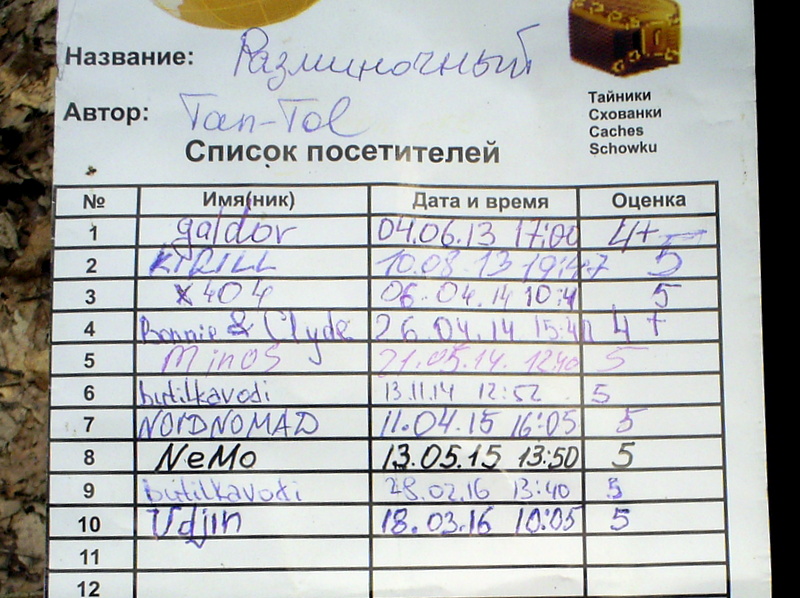 Название: Разминочный
Автор: Tan-Tol
Тайники
Схованки
Caches
Schowku
Список посетителей
№ Имя(ник) Дата и время Оценка
1 galdor 04.06.13 17:00 4+
2 KIRILL 10.08.13 19:47 5
3 x404 06.04.14 10:41 5
4 Bonnie & Clyde 26.04.14 4+
5 Minos 21.05.14. 12:40 5
6 butilkavodi 13.11.14 12:52 5
7 NORDNOMAD 11.04.15 16:05 5
8 NeMo 13.05.15 13:50 5
9 butilkavodi 28.02.16 13:40 5
10 Udjin 18.03.16 10:05 5
11
12